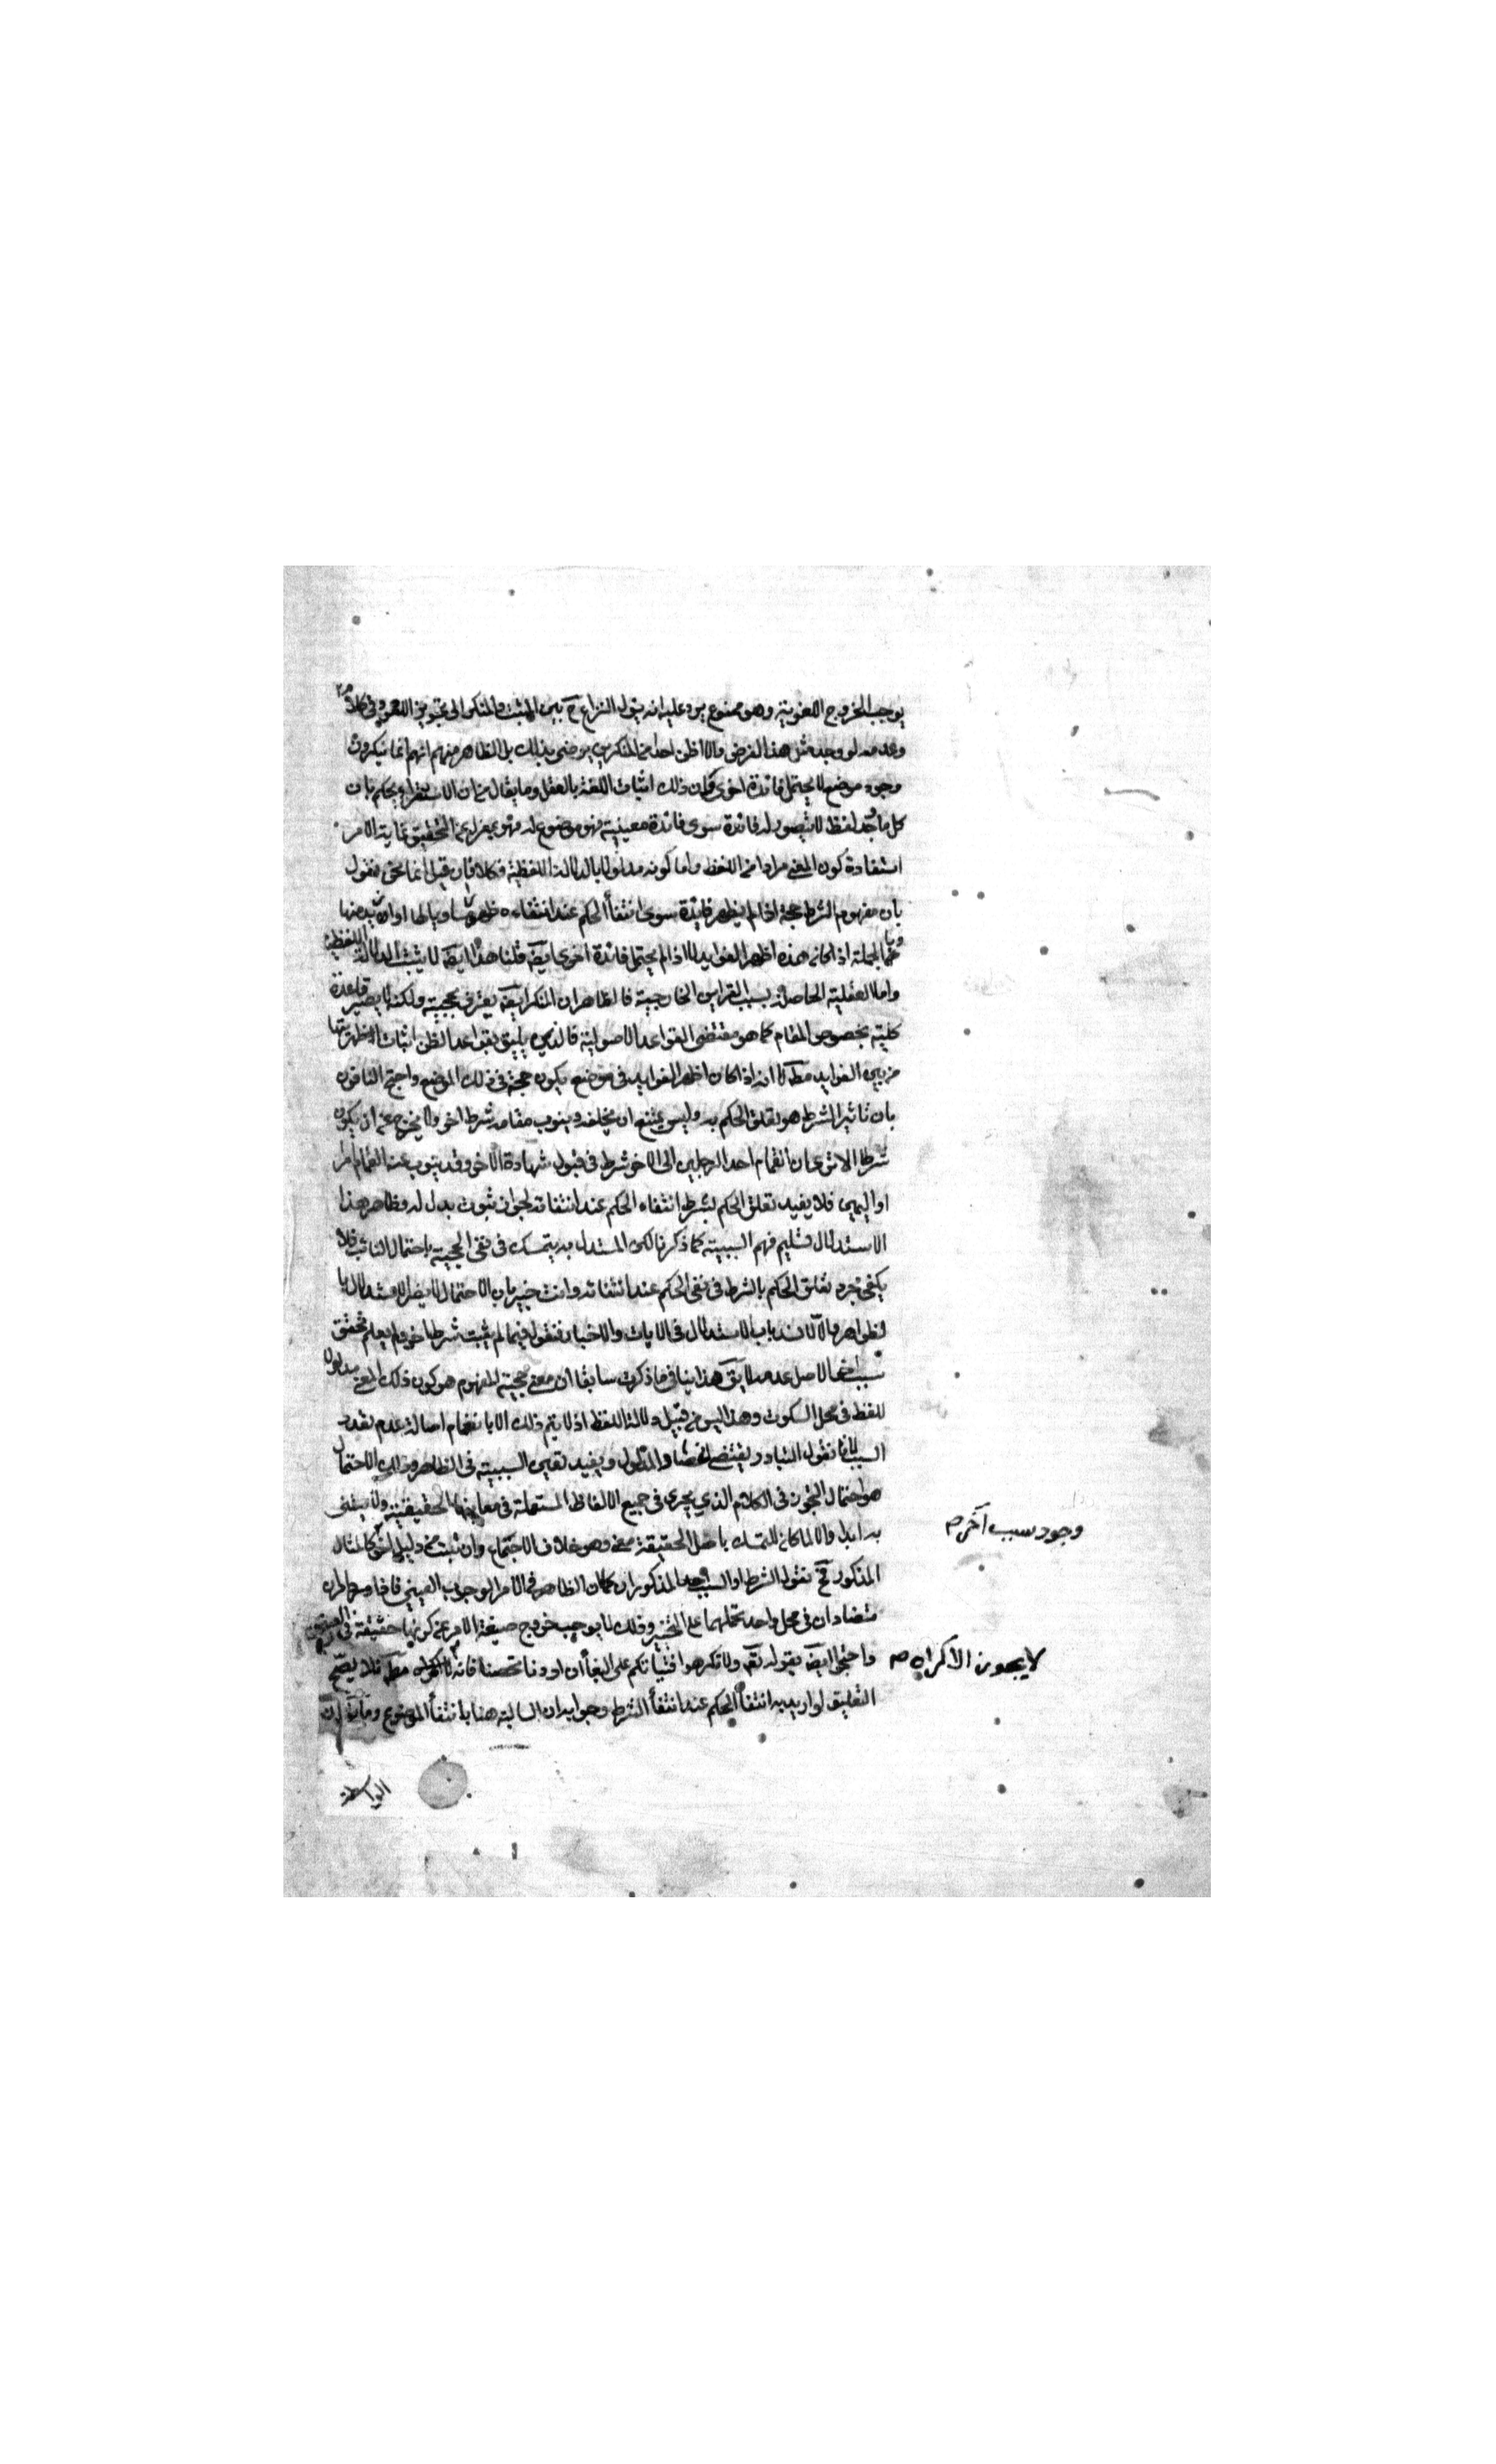 يوجب الخروج اللغوية وهو ممنوع يرد عليه انه يؤل النزاع ح بين المثبت والمنكر الى تجويز اللغو في كلام
وعدمه لو وجد مثل هذا الفرض والا اظن احدا من المنكرين يرضى بذلك بل الظاهر منهم انهم انما ينكرون
وجود موضع لا يحتمل فائدة اخرى فان ذلك اثبات اللغة بالعقل وما يقال من ان الاستقراء يحكم بان
كل ما وجد لفظ لا يتصور له فائدة سوى فائدة معينية فهو موضوع له فهو بمعزل عن التحقيق غاية الامر
استفادة كون المعنى مرادا من اللفظ واما كونه مدلولا بالدلالة اللفظية فكلا فان قيل انما نحن نقول
بان مفهوم الشرط حجة اذا لم يظهر فائدة سوى انتفاء الحكم عند انتفاءه يساويها او ازيد منها
وبالجملة اذا كانت هذه اظهر الفوايد لا اذا لم يحتمل فائدة اخرى ايضه قلنا هذا ايضه لا يثبت الدلالة اللفظية
واما العقلية الحاصلة بسبب القراين الخارجية فالظاهر ان المنكر ايضه يعترف بحجيته ولكنه لا يصير قاعدة
كلية بخصوص المقام كما هو مقتضى القواعد الاصولية فالذي يليق بقواعد الظن اثبات اظهريتها
من بين الفوايد مطلا انه اذا كان اظهر الفوايد في موضع يكون حجة في ذلك الموضع واحتج النافون
بان تاثير الشرط هو تعلق الحكم به وليس يمتنع ان يخلفه وينوب مقامه شرط اخر ولا يخرج عن ان يكون
شرطا الا ترى ان انضمام احد الرجلين الى الاخر شرط في قبول شهادة الاخر وقد ينوب عنه انضمام امر
او اليمين فلا يفيد تعلق الحكم بشرط انتفاء الحكم عند انتفائه لجواز ثبوت بدل له وظاهر هذا
الاستدلال تسليم فهم السببية كما ذكرنا لكن المستدل به يتمسك في نفى الحجية باحتمال النائب فلا
يكفي مجرد تعلق الحكم بالشرط في نفى الحكم عند انتفائه وانت خبير بان الاحتمال لا يضر الاستدلال با
لظواهر والا لانسد باب الاستدلال في الايات والاخبار فنقول فيما لم يثبت شرط اخر ولم يعلم تحقق
سبب اخر الاصل عدمه لا يق هذا ينافي ما ذكرت سابقا ان معنى حجية المفهوم هو كون ذلك المعنى مدلولا
للفظ في محل السكوت وهذا ليس من قبيل دلالة اللفظ اذ لا يتم ذلك الا بانضمام اصالة عدم تعدد
السبب لانا نقول التبادر يقتضي انحصار المدلول ويفيد تعيين السببية في الظاهر وذلك الاحتمال
هو احتمال التجوز في الكلام الذي يجري في جميع الالفاظ المستعملة في معانيها الحقيقية ولا يعتنى
وجود سبب آخر م
به ابدا والا لما كان للتمسك باصل الحقيقة معنى وهو خلاف الاجماع وان ثبت من دليل اخر كالمثال
المذكور فح نقول الشرط او السبب احد المذكوران كما ان الظاهر في الامر الوجوب العيني فاذا ورد امران
متضادان في محل واحد نحملهما على التخيير وذلك لا يوجب خروج صيغة الامر عن كونها حقيقة في العيني
واحتجوا ايضه بقوله تعه ولا تكرهوا فتياتكم على البغاء ان اردن تحصنا فانه لا يجوز الاكراه مطه فلا يصح
لا يجوز الاكراه م
التعليق لو اريد به انتفاء الحكم عند انتفاء الشرط وجوابه ان السالبة هنا بانتفاء الموضوع
الواسطة